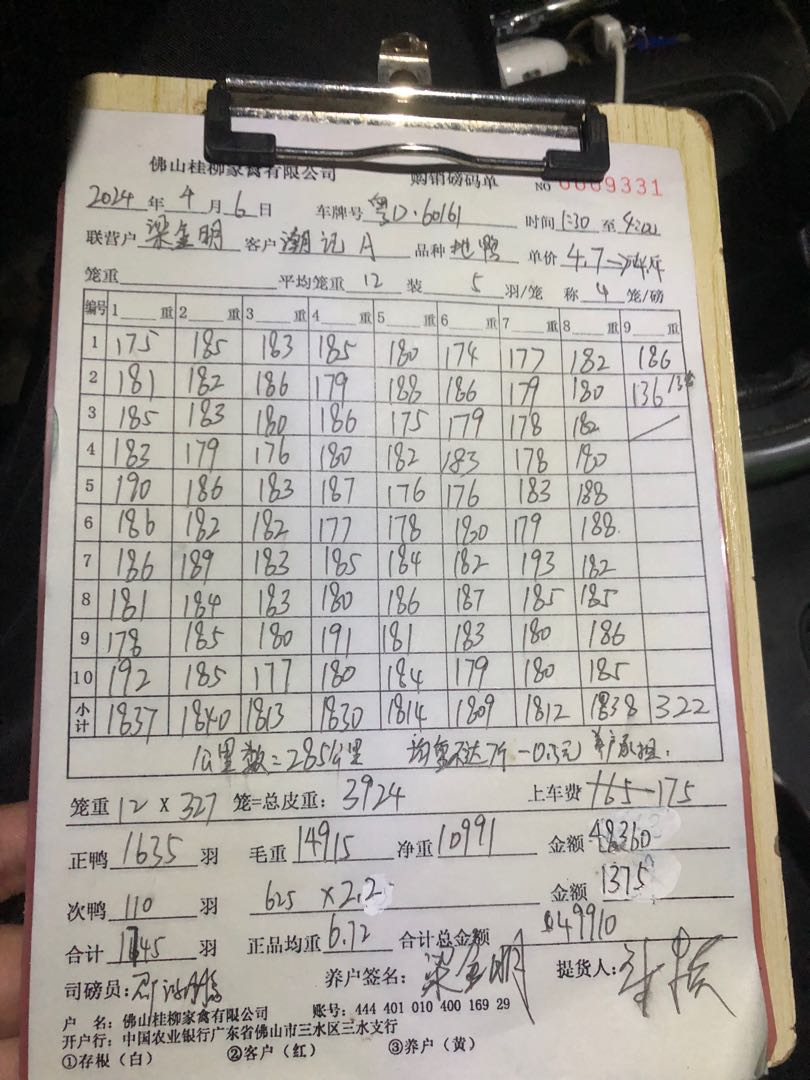 佛山桂柳家禽有限公司 购销磅码单 NO 0009331
2024 年 4 月 6 日 车牌号 粤D·60161 时间 1:30 至 4:00
联营户 梁金明 客户 潮记A 品种 地鸭 单价 4.7
笼重 平均笼重 12 装 5 羽/笼 称 4 笼/磅
编号 1 重 2 重 3 重 4 重 5 重 6 重 7 重 8 重 9 重
1 175 185 183 185 180 174 177 182 186
2 181 182 186 179 188 186 179 180 136
3 185 183 180 186 175 179 178 182
4 183 179 176 180 182 183 178 180
5 190 186 183 187 176 176 183 188
6 186 182 182 177 178 180 179 188
7 186 189 183 185 184 182 193 182
8 181 184 183 180 186 187 185 185
9 178 185 180 191 181 183 180 186
10 192 185 177 180 184 179 180 185
小计 1837 1840 1813 1830 1814 1809 1812 1838 322
公里数=285公里 均重不达7斤-0.5元 养户承担.
笼重 12 X 327 笼=总皮重: 3924 上车费 175
正鸭 1635 羽 毛重 14915 净重 10991 金额 48360
次鸭 110 羽 625 ×2.2 金额 1375
合计 1745 羽 正品均重 6.72 合计总金额 49910
司磅员: 养户签名: 梁金明 提货人:
户 名: 佛山桂柳家禽有限公司 账号: 444 401 010 400 169 29
开户行: 中国农业银行广东省佛山市三水区三水支行
①存根(白) ②客户(红) ③养户(黄)